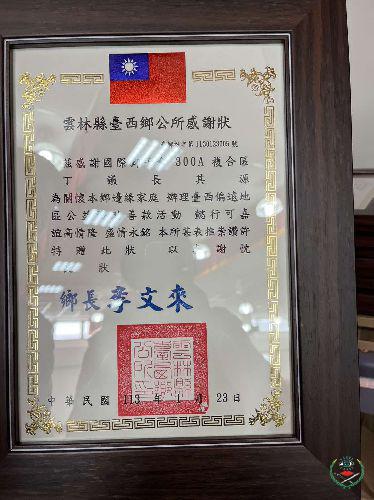 雲林縣臺西鄉公所感謝狀
第1130123005號
茲感謝國際 300A 複合區
丁 議 長 其 源
為關懷本鄉邊緣家庭 辦理臺西偏遠地
區公益 善款活動 懿行可嘉
誼高情隆 盛情永銘 本所甚表推崇讚許
特贈此狀 以 謝
狀
鄉長 李文來
雲林縣臺西鄉公所印
中華民國 113 年 1 月 23 日